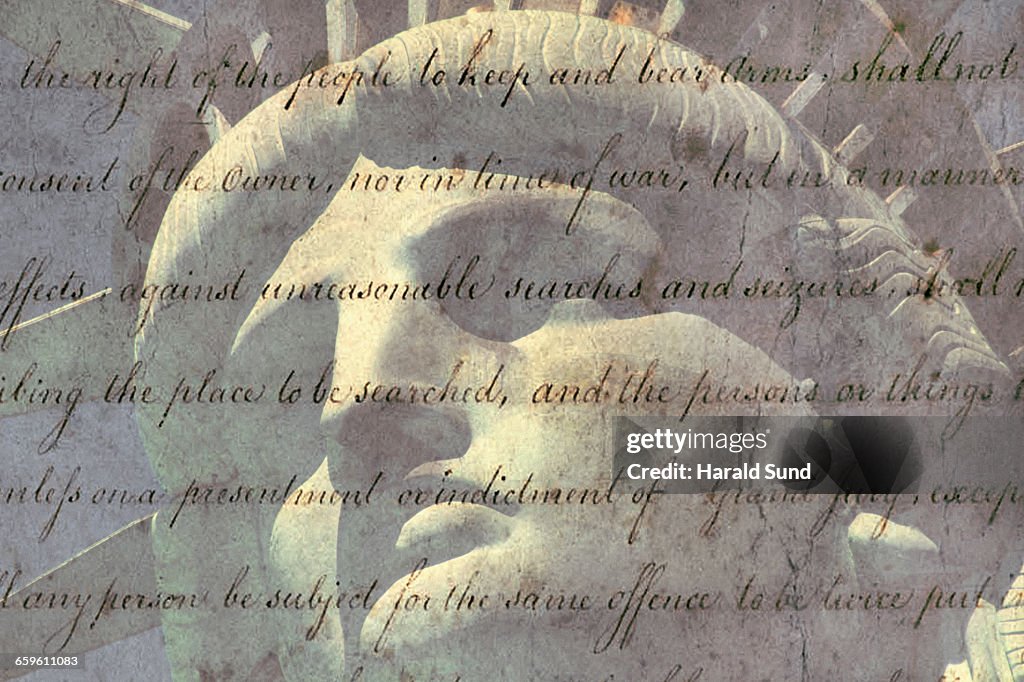 the right of the people to keep and bear Arms, shall not
consent of the Owner, nor in time of war, but in a manner
effects, against unreasonable searches and seizures, shall
the place to be searched, and the persons or things
on a presentment or indictment of Grand Jury, except
any person be subject for the same offence to be twice put
gettyimages®
Credit: Harald Sund
659611083